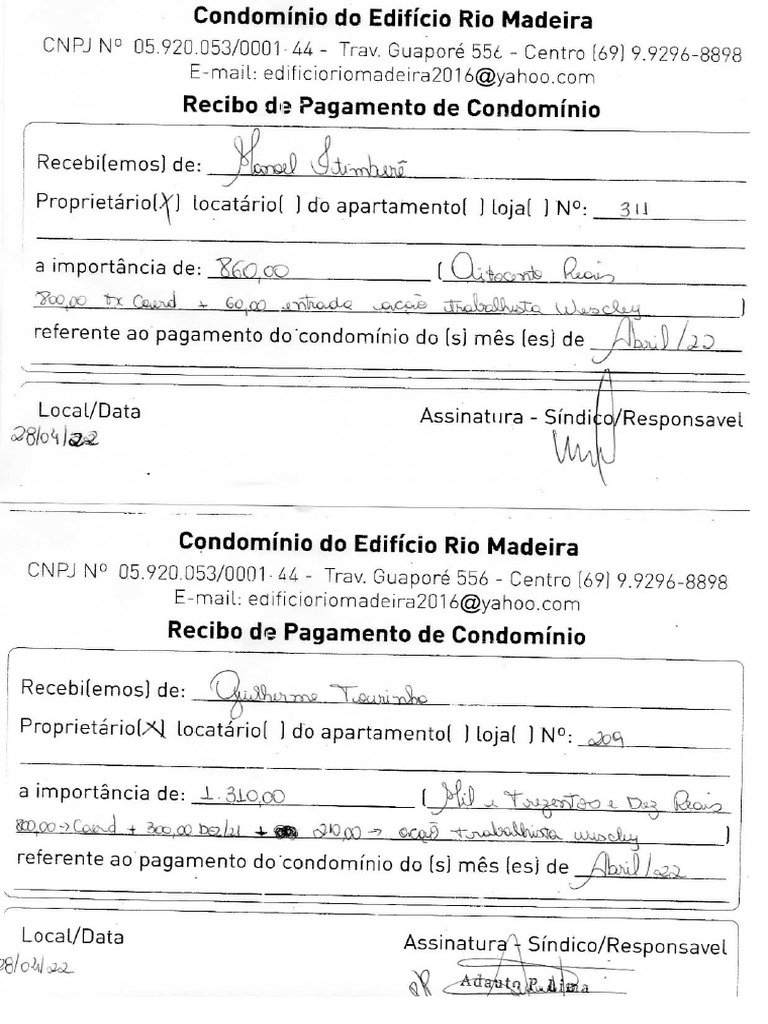 Condomínio do Edifício Rio Madeira
CNPJ Nº 05.920.053/0001-44 - Trav. Guaporé 556 - Centro (69) 9.9296-8898
E-mail: edificioriomadeira2016@yahoo.com
Recibo de Pagamento de Condomínio
Recebi(emos) de: Manoel Itimberê
Proprietário(X) locatário( ) do apartamento( ) loja( ) Nº: 311
a importância de: 860,00 ( Oitocento Reais
800,00 tx Caerd + 60,00 entrada ação trabalhista Wescley )
referente ao pagamento do condomínio do (s) mês (es) de Abril/22
Local/Data
Assinatura - Síndico/Responsavel
28/04/22
Condomínio do Edifício Rio Madeira
CNPJ Nº 05.920.053/0001-44 - Trav. Guaporé 556 - Centro (69) 9.9296-8898
E-mail: edificioriomadeira2016@yahoo.com
Recibo de Pagamento de Condomínio
Recebi(emos) de: Guilherme Tourinho
Proprietário(X) locatário( ) do apartamento( ) loja( ) Nº: 209
a importância de: 1.310,00 ( Mil e Trezentos e Dez Reais
800,00 → Caerd + 300,00 Dez/21 + 210,00 → ação trabalhista wescley )
referente ao pagamento do condomínio do (s) mês (es) de Abril/22
Local/Data
Assinatura - Síndico/Responsavel
28/04/22
Adauto P. Lima